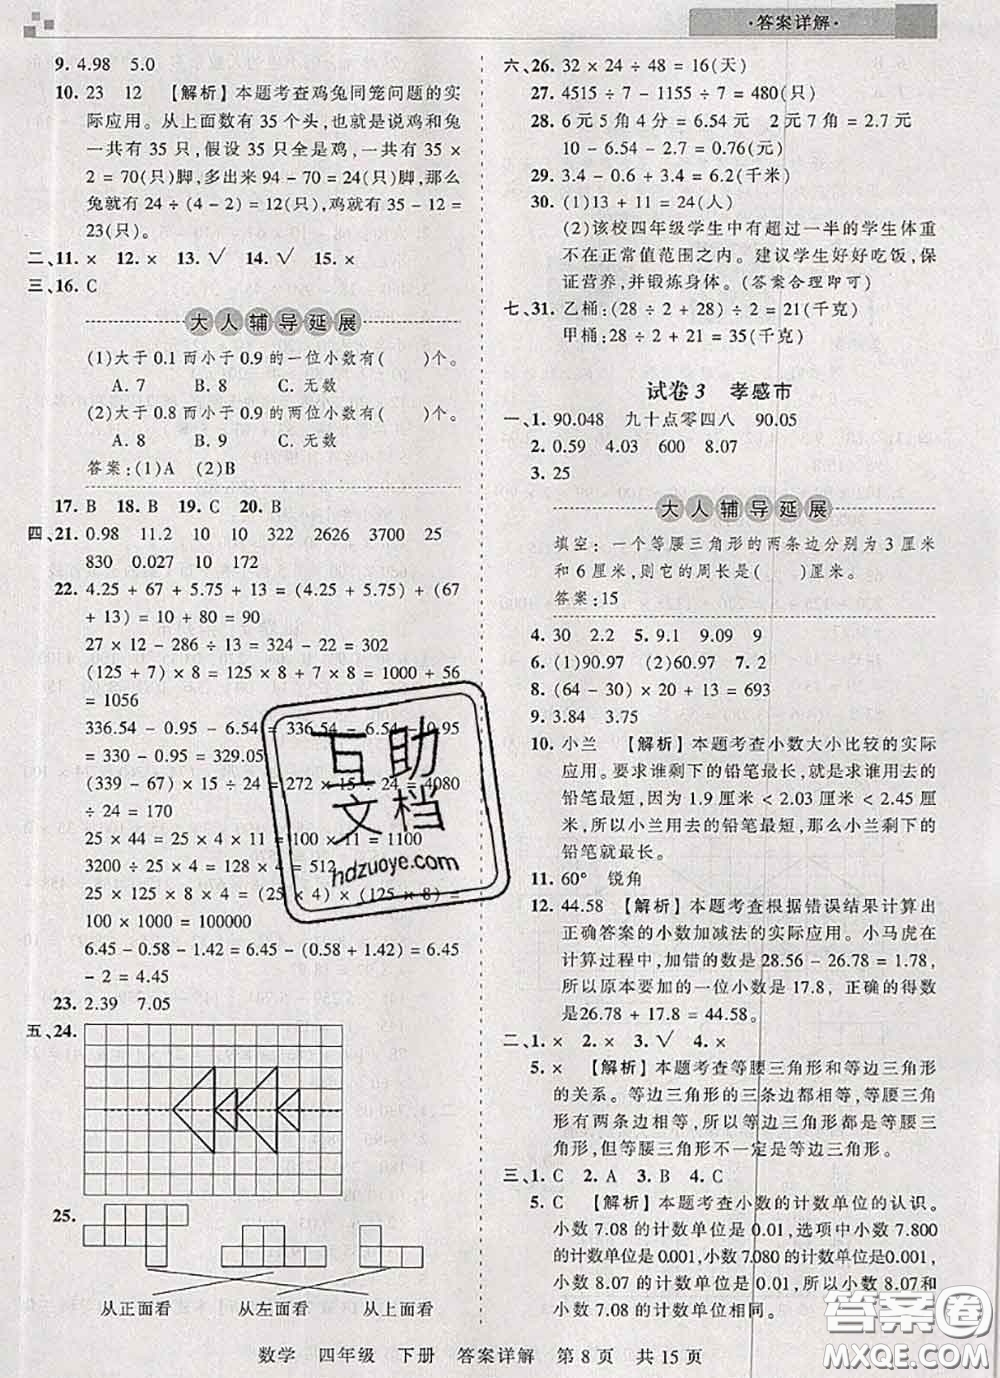 ·答案详解·
9. 4.98  5.0
10. 23  12  【解析】本题考查鸡兔同笼问题的实
际应用。从上面数有 35 个头,也就是说鸡和兔
一共有 35 只,假设 35 只全是鸡,一共有 35 ×
2 = 70(只)脚,多出来 94 - 70 = 24(只)脚,那么
兔就有 24 ÷ (4 - 2) = 12(只),鸡就有 35 - 12 =
23(只)。
二、11. ×  12. ×  13. √  14. √  15. ×
三、16. C
大人辅导延展
(1)大于 0.1 而小于 0.9 的一位小数有(  )个。
A. 7  B. 8  C. 无数
(2)大于 0.8 而小于 0.9 的两位小数有(  )个。
A. 8  B. 9  C. 无数
答案:(1)A  (2)B
17. B  18. B  19. C  20. B
四、21. 0.98  11.2  10  10  322  2626  3700  25
830  0.027  10  172
22. 4.25 + 67 + 5.75 + 13 = (4.25 + 5.75) + (67
+ 13) = 10 + 80 = 90
27 × 12 - 286 ÷ 13 = 324 - 22 = 302
(125 + 7) × 8 = 125 × 8 + 7 × 8 = 1000 + 56
= 1056
336.54 - 0.95 - 6.54 = 336.54 - 6.54 - 0.95
= 330 - 0.95 = 329.05
(339 - 67) × 15 ÷ 24 = 272 × 15 ÷ 24 = 4080
÷ 24 = 170
25 × 44 = 25 × 4 × 11 = 100 × 11 = 1100
3200 ÷ 25 × 4 = 128 × 4 = 512
25 × 125 × 4 × 8 = (25 × 4) × (125 × 8) =
100 × 1000 = 100000
6.45 - 0.58 - 1.42 = 6.45 - (0.58 + 1.42) = 6.45
- 2 = 4.45
23. 2.39  7.05
五、24.
25.
从正面看  从左面看  从上面看
六、26. 32 × 24 ÷ 48 = 16(天)
27. 4515 ÷ 7 - 1155 ÷ 7 = 480(只)
28. 6 元 5 角 4 分 = 6.54 元  2 元 7 角 = 2.7 元
10 - 6.54 - 2.7 = 0.76(元)
29. 3.4 - 0.6 + 3.4 = 6.2(千米)
30. (1)13 + 11 = 24(人)
(2)该校四年级学生中有超过一半的学生体重
不在正常值范围之内。建议好好吃饭,保
证营养,并锻炼身体。(答案合理即可)
七、31. 乙桶:(28 ÷ 2 + 28) ÷ 2 = 21(千克)
甲桶:28 ÷ 2 + 21 = 35(千克)
试卷 3  孝感市
一、1. 90.048  九十点零四八  90.05
2. 0.59  4.03  600  8.07
3. 25
大人辅导延展
填空:一个等腰三角形的两条边分别为 3 厘米
和 6 厘米,则它的周长是(  )厘米。
答案:15
4. 30  2.2  5. 9.1  9.09  9
6. (1)90.97  (2)60.97  7. 2
8. (64 - 30) × 20 + 13 = 693
9. 3.84  3.75
10. 小兰  【解析】本题考查小数大小比较的实际
应用。要求谁剩下的铅笔最长,就是求谁用去的
铅笔最短,因为 1.9 厘米 < 2.03 厘米 < 2.45 厘
米,所以小兰用去的铅笔最短,那么小兰剩下的
铅笔就最长。
11. 60°  锐角
12. 44.58  【解析】本题考查根据错误结果计算出
正确答案的小数加减法的实际应用。小马虎在
计算过程中,加错的数是 28.56 - 26.78 = 1.78,
所以原本要加的一位小数是 17.8, 正确的得数
是26.78 + 17.8 = 44.58。
二、1. ×  2. ×  3. √  4. ×
5. ×  【解析】本题考查等腰三角形和等边三角形
的关系。等边三角形的三条边都相等,等腰三角
形有两条边相等,所以等边三角形都是等腰三
角形,但等腰三角形不一定是等边三角形。
三、1. C  2. A  3. B  4. C
5. C  【解析】本题考查小数的计数单位的认识。
小数 7.08 的计数单位是 0.01,选项中小数 7.800
的计数单位是 0.001,小数 7.080 的计数单位是
0.001,小数 8.07 的计数单位是 0.01,所以小数
7.08 和小数 8.07 的计数单位相同。
数学  四年级  下册  答案详解  第 8 页  共 15 页
互助
文档
hdzuoye.com
答案圈
MXQE.COM